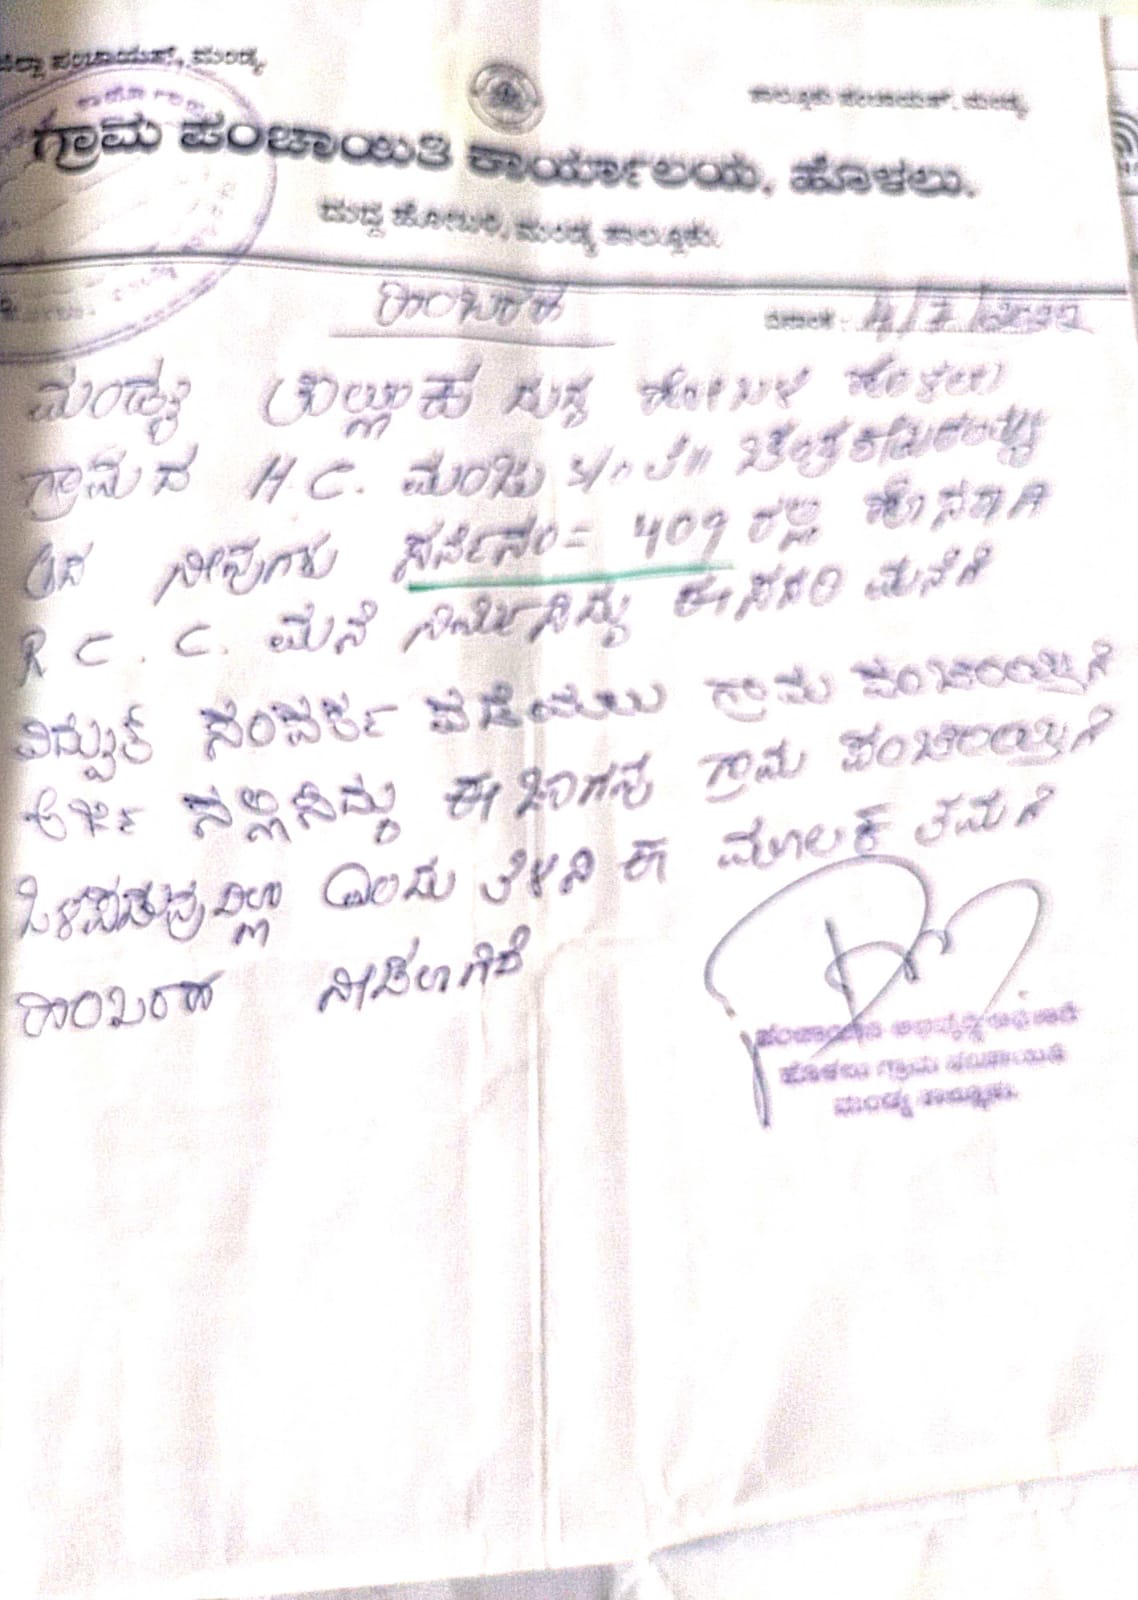 ಜಿಲ್ಲಾ ಪಂಚಾಯತ್, ಮಂಡ್ಯ
ತಾಲ್ಲೂಕು ಪಂಚಾಯತ್, ಮಂಡ್ಯ
ಗ್ರಾಮ ಪಂಚಾಯಿತಿ ಕಾರ್ಯಾಲಯ, ಹೊಳಲು.
ದುದ್ದ ಹೋಬಳಿ, ಮಂಡ್ಯ ತಾಲ್ಲೂಕು.
ಹಿಂಬರಹ
ದಿನಾಂಕ : 4/7/2022
ಮಂಡ್ಯ ತಾಲ್ಲೂಕು ದುದ್ದ ಹೋಬಳಿ ಹೊಳಲು
ಗ್ರಾಮದ H.C. ಮಂಜು S/o ಲೇ||
ಆದ ನೀವುಗಳು ಸರ್ವೆನಂ= 409 ರಲ್ಲಿ ಹೊಸದಾಗಿ
R.C.C. ಮನೆ ನಿರ್ಮಿಸಿದ್ದು ಈ ಸದರಿ ಮನೆಗೆ
ವಿದ್ಯುತ್ ಸಂಪರ್ಕ ಪಡೆಯಲು ಗ್ರಾಮ ಪಂಚಾಯ್ತಿಗೆ
ಅರ್ಜಿ ಸಲ್ಲಿಸಿದ್ದು ಈ ಜಾಗವು ಗ್ರಾಮ ಪಂಚಾಯ್ತಿಗೆ
ಒಳಪಡುವುದಿಲ್ಲಾ ಎಂದು ತಿಳಿಸಿ ಈ ಮೂಲಕ ತಮಗೆ
ಹಿಂಬರಹ ನೀಡಲಾಗಿದೆ
ಪಂಚಾಯಿತಿ ಅಭಿವೃದ್ಧಿ ಅಧಿಕಾರಿ
ಹೊಳಲು ಗ್ರಾಮ ಪಂಚಾಯಿತಿ
ಮಂಡ್ಯ ತಾಲ್ಲೂಕು.